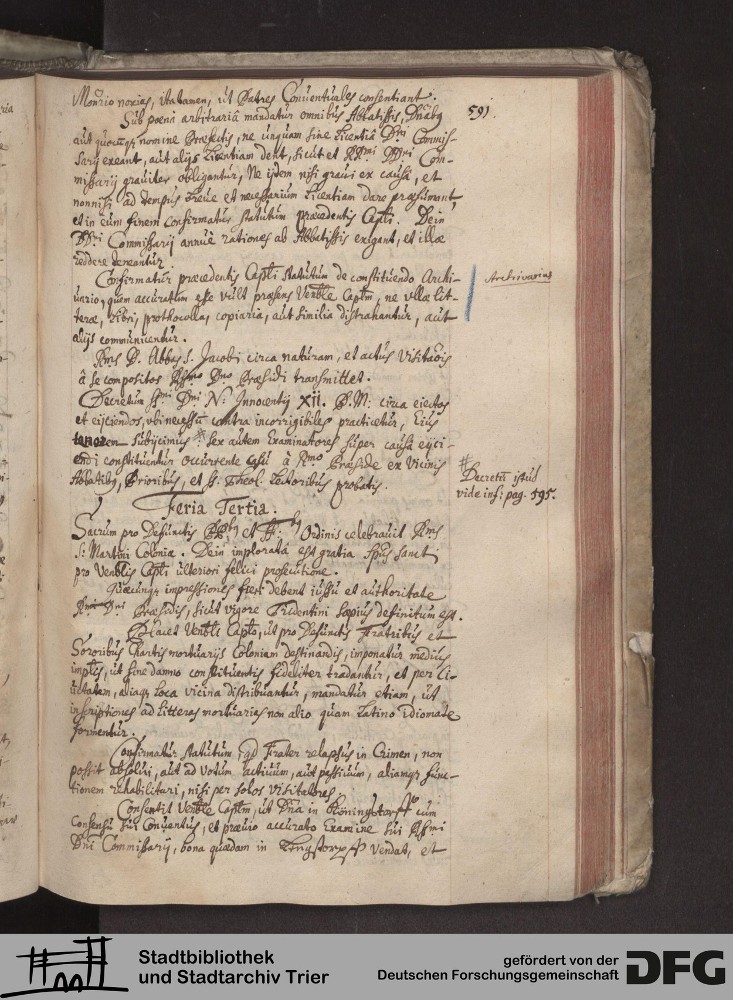 591.
Mon̄rio noxias, ita tamen, ut Patres Conventuales consentiant.
Sub poena arbitraria mandatur omnibus Abbatissis, Dn̄abq
aut quocunqz nomine Praefectis, ne unquam sine licentia Dn̄i Commis-
sarij exeant, aut alijs licentiam dent, sicut et RR.mi DD.ni Com-
missarij graviter obligantur, Ne ijdem nisi gravi ex causa, et
nonnisi ad tempus breve et necessarium licentiam dare praesumant,
et in eum finem confirmatur statutum praecedentis Cap̄li. Dein
DD.ni Commissarij annuè rationes ab Abbatissis exigant, et illae
reddere teneantur.
Confirmatur praecedentis Cap̄li statutum de constituendo Archi-
vario, quem accuratum esse vult praesens Ven̄ble Cap̄lm, ne ullae lit-
terae, libri, prothocolla, copiaria, aut similia distrahantur, aut
alijs communicentur.
Archivarius
R̄ms D. Abbas S. Jacobi circa naturam, et actus Visitaōis
à se compositos R̄mo Dn̄o Praesidi transmittet.
Decretum SS.mi Dn̄i N. Innocentij XII. P. M. circa eiectos
et eijciendos, ubi necessū contra incorrigibiles practicetur, Eius
tenorem subijcimus # Sex autem Examinatores super causa eijci-
endi constituentur occurrente casu à R̄mo Praeside ex vicinis
Abbatibq, Prioribus, et SS. Theol. Lectoribus probatis.
# Decretū istud
vide inf: pag. 595.
Feria Tertia.
Sacrum pro Defunctis Ordinis celebravit R̄ms
S. Martini Coloniae. Dein implorata est gratia Sp̄us Sancti
pro Ven̄blis Cap̄li ulteriori felici prosecutione.
Quaecunqz impressiones fieri debent iussu et authoritate
R̄mi Dn̄i Praesidis, sicut vigore Tridentini saepius definitum est.
Placet Ven̄bli Cap̄lo, ut pro Defunctis Fratribus et
Sororibus Chartis mortuarijs Coloniam destinandis, imponatur medius
imp̄lis, ut sine damno constituentis fideliter tradantur, et per Ci-
vitatem, aliaqz loca vicina distribuantur, mandatur etiam, ut
inscriptiones ad litteras mortuarias non alio quam Latino idiomate
formentur.
Confirmatur statutum, qd Frater relapsus in Crimen, non
possit absolvi, aut ad votum activum, aut passivum, aliamqz func-
tionem rehabilitari, nisi per solos Visitatores.
Consentit Ven̄ble Cap̄lm, ut Dn̄a in Köningstorff cum
consensu sui Conventus, et praevio accurato Examine sui R̄mi
Dn̄i Commissarij, bona quaedam in Lengstorpff vendat, et
Stadtbibliothek
und Stadtarchiv Trier
gefördert von der
Deutschen Forschungsgemeinschaft
DFG